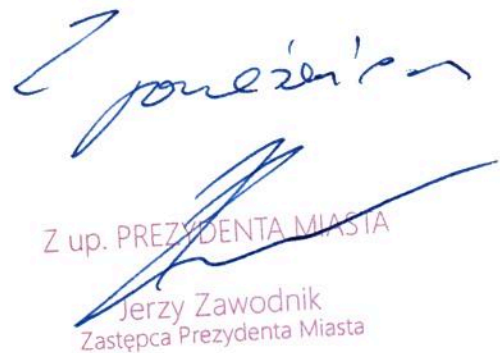 Z poważaniem
Z up. PREZYDENTA MIASTA
Jerzy Zawodnik
Zastępca Prezydenta Miasta